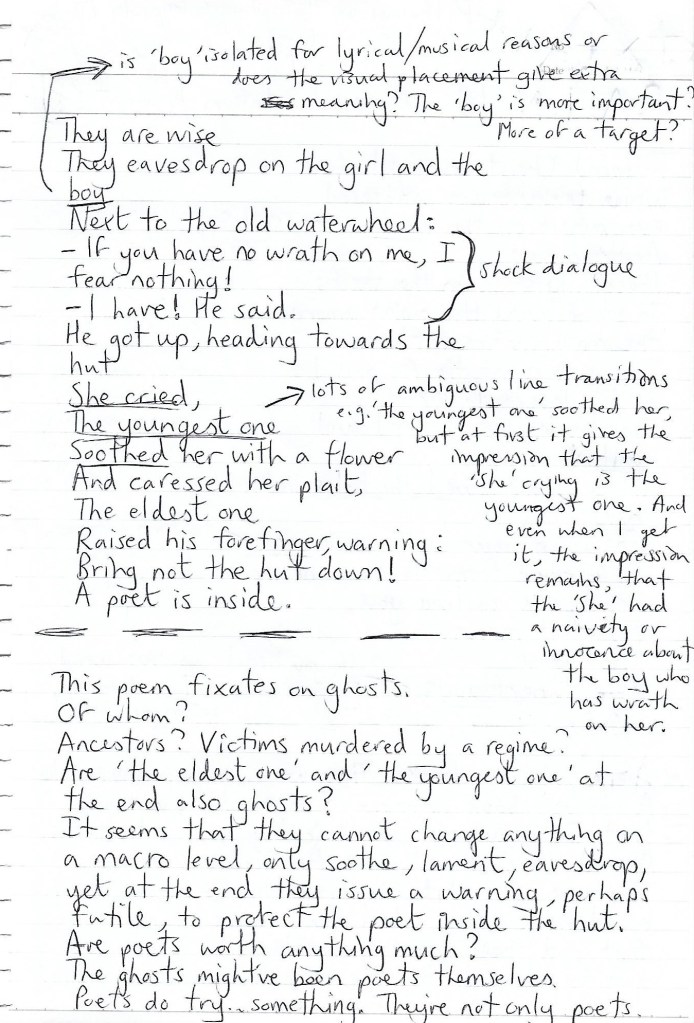 is 'boy' isolated for lyrical/musical reasons or
does the visual placement give extra
meaning? The 'boy' is more important?
More of a target?
They are wise
They eavesdrop on the girl and the
boy
Next to the old waterwheel:
- If you have no wrath on me, I
fear nothing!
- I have! He said.
shock dialogue
He got up, heading towards the
hut
She cried,
The youngest one
Soothed her with a flower
And caressed her plait,
The eldest one
Raised his forefinger, warning:
Bring not the hut down!
A poet is inside.
lots of ambiguous line transitions
e.g. 'the youngest one' soothed her,
but at first it gives the
impression that the
'she' crying is the
youngest one. And
even when I get
it, the impression
remains, that
the 'she' had
a naivety or
innocence about
the boy who
has wrath
on her.
This poem fixates on ghosts.
Of whom?
Ancestors? Victims murdered by a regime?
Are 'the eldest one' and 'the youngest one' at
the end also ghosts?
It seems that they cannot change anything on
a macro level, only soothe, lament, eavesdrop,
yet at the end they issue a warning, perhaps
futile, to protect the poet inside the hut.
Are poets worth anything much?
The ghosts might've been poets themselves.
Poets do try... something. They're not only poets.